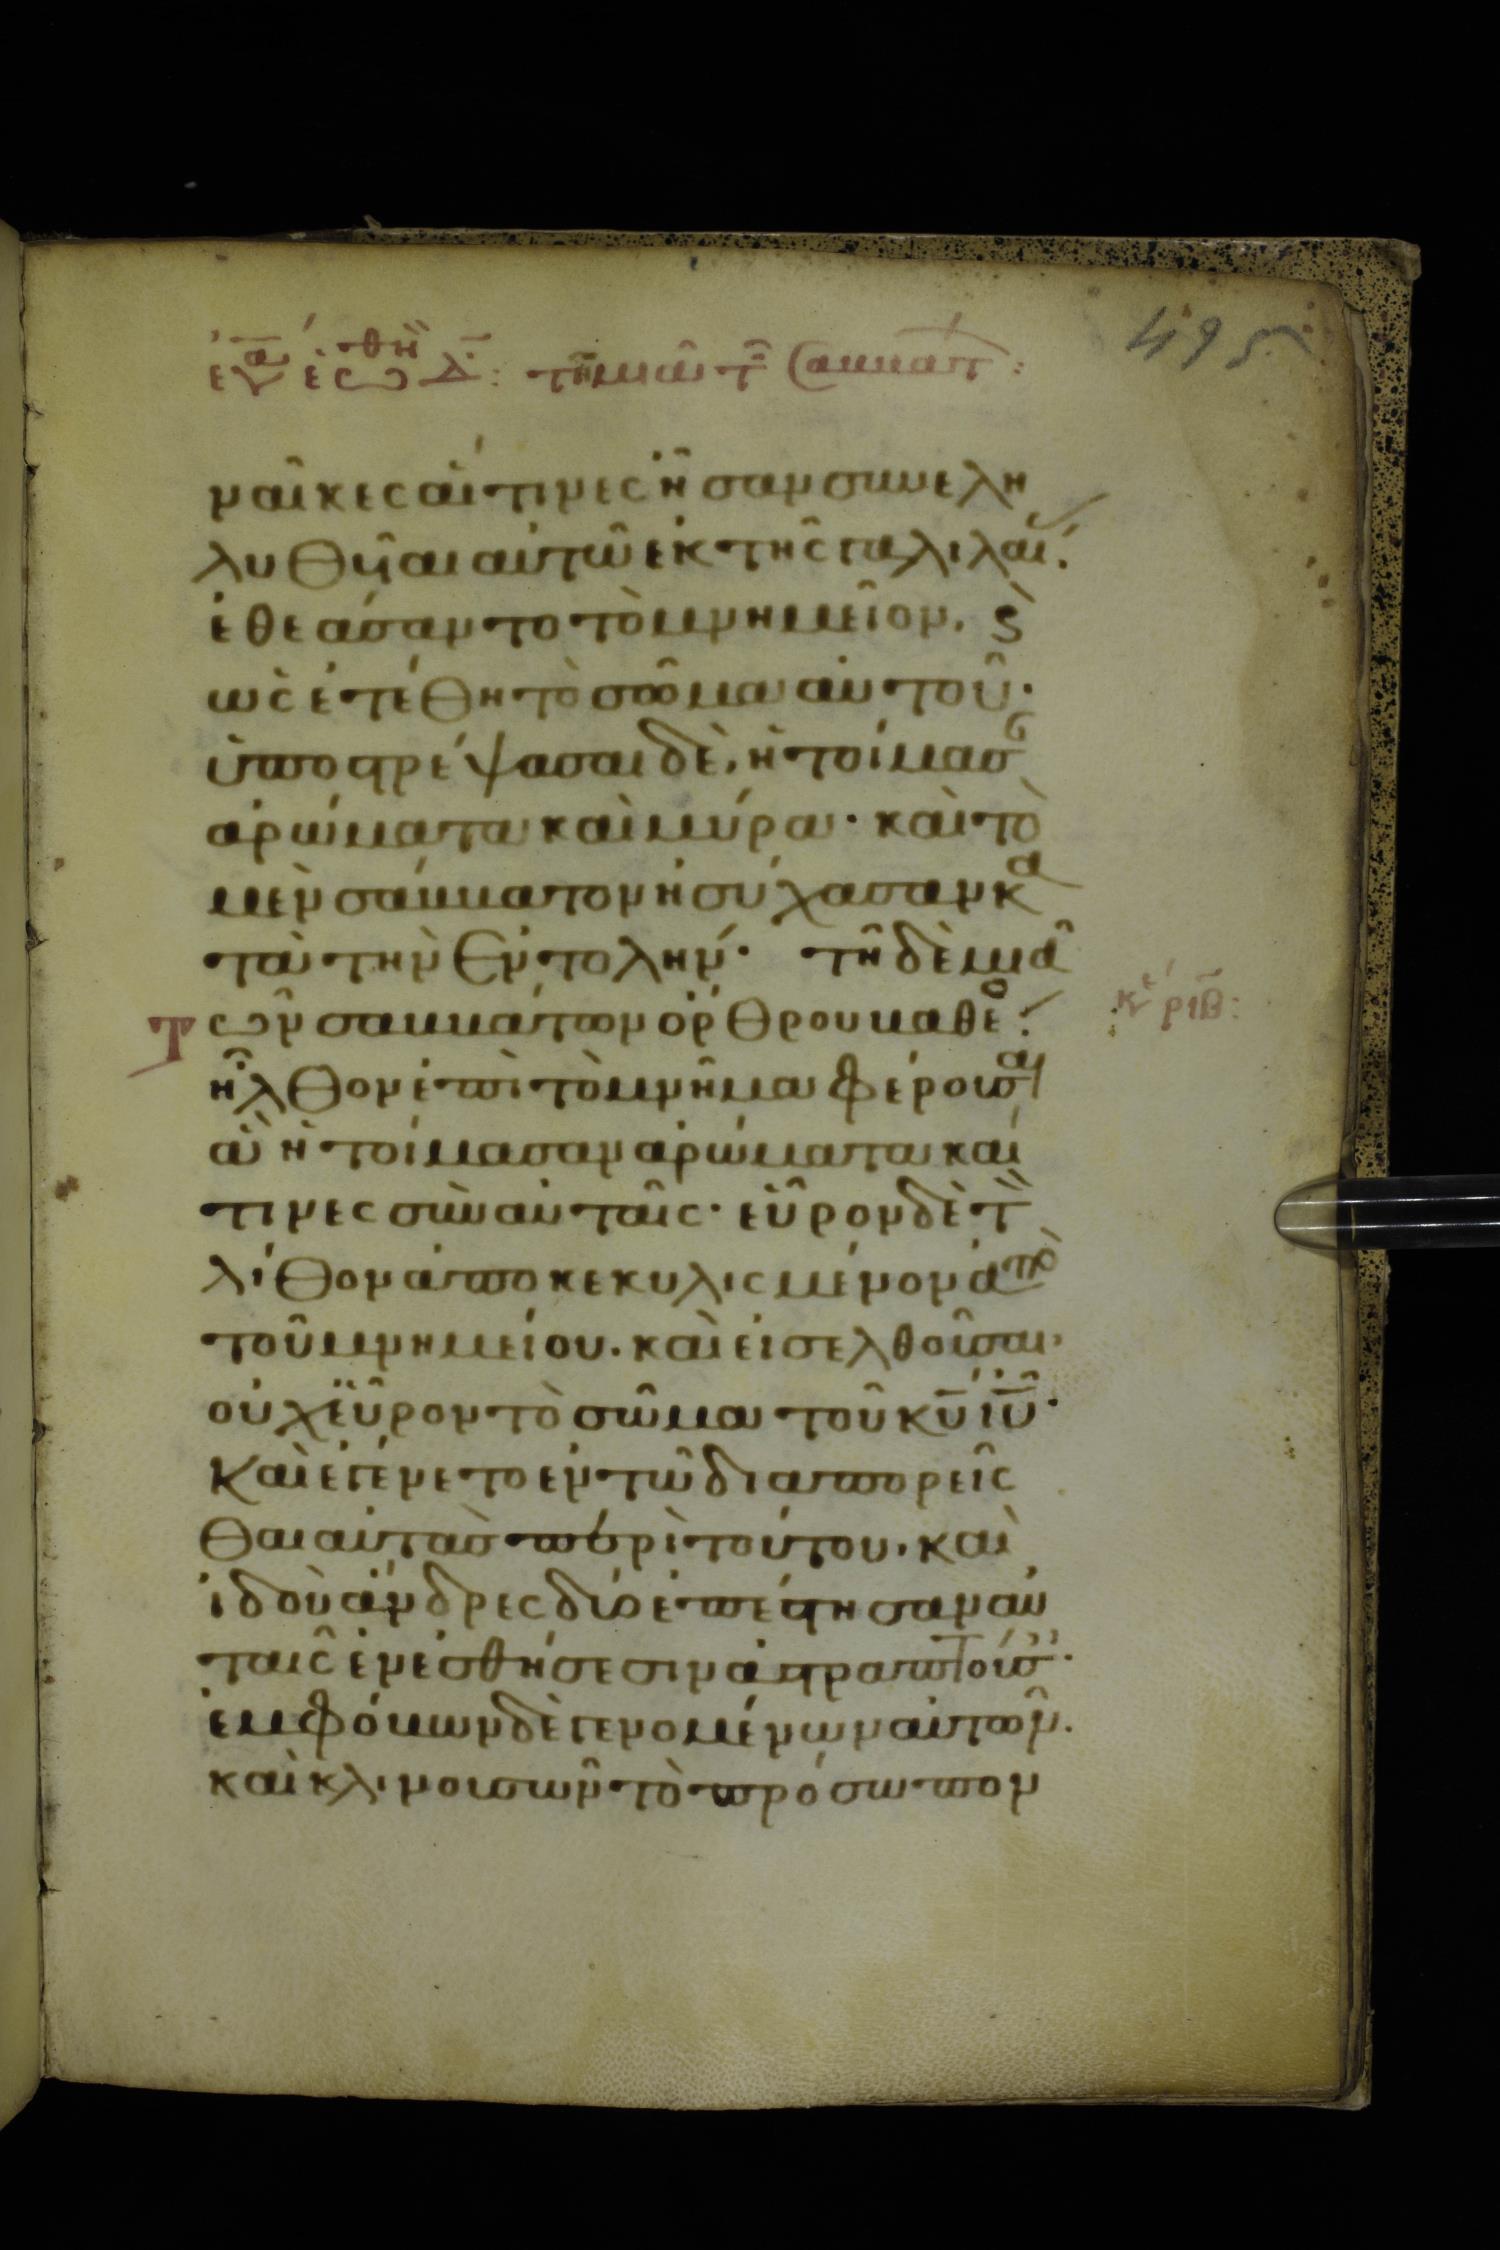 εὐα ἑωθι δ: τῇ μιᾷ τῶν σαββάτ:
495
ναῖκες αἵτινες ἦσαν συνελη
λυθῆαι αὐτῶ ἐκ τῆς γαλιλαι.
ἐθεάσαντο τὸ μνημεῖον. ϗ
ὡς ἐτέθη τὸ σῶμα αὐτοῦ·
ὑποστρέψασαι δὲ, ἡτοίμασ
ἀρώματα καὶ μύρα· καὶ τὸ
μὲν σάββατον ἡσύχασαν κα
τὰ τὴν ἐντολήν· τῆ δὲ μιᾶ
Τῶν σαββάτων ὄρθρου βαθέο
ἦλθον ἐπὶ τὸ μνῆμα φέρουσαι
ἃ ἡτοίμασαν ἀρώματα καί
τινες σὺν αὐταῖς· εὗρον δὲ τ
λίθον ἀποκεκυλισμένον ἀπὸ
τοῦ μνημείου. καὶ εἰσελθοῦσαι,
οὐχ εὗρον τὸ σῶμα τοῦ κυ ιυ·
Καὶ ἐγένετο ἐν τῶ διαπορεῖσ
θαι αὐτὰς περὶ τούτου. καὶ
ἰδοὺ ἄνδρες δύο ἐπέστησαν αὐ
ταῖς ἐν ἐσθήσεσιν ἀστραπτούσ·
ἐμφόβων δὲ γενομένων αὐτῶν.
καὶ κλινουσῶν τὸ πρόσωπον
κε ριβ: